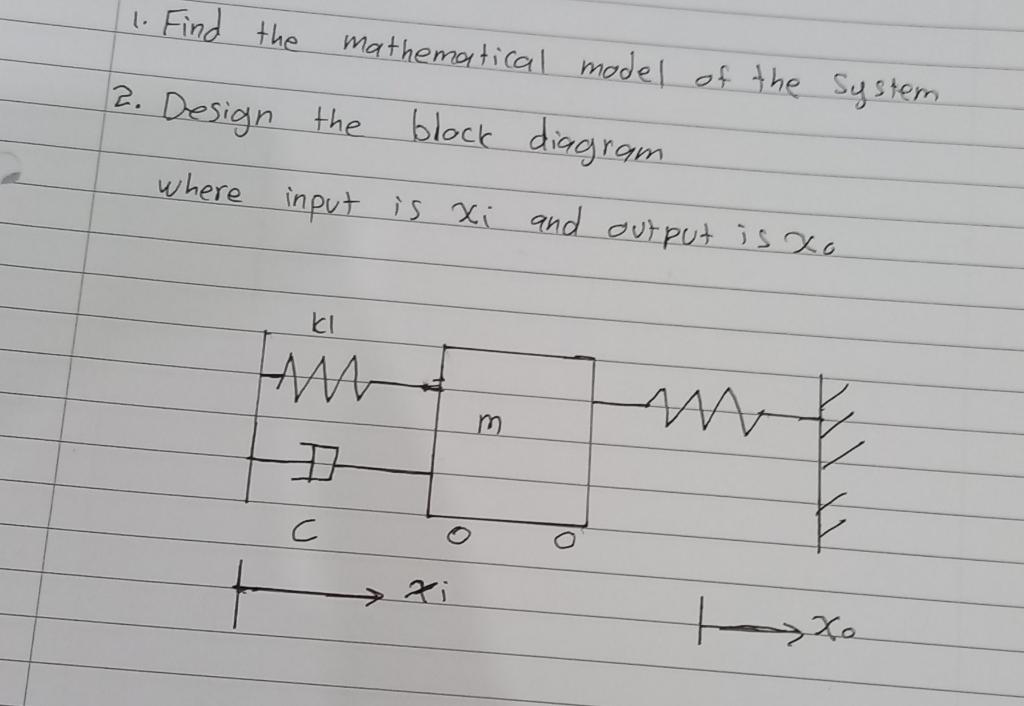 1. Find the mathematical model of the system
2. Design the block diagram
where input is xi and output is xo
k1
m
C
xi
xo